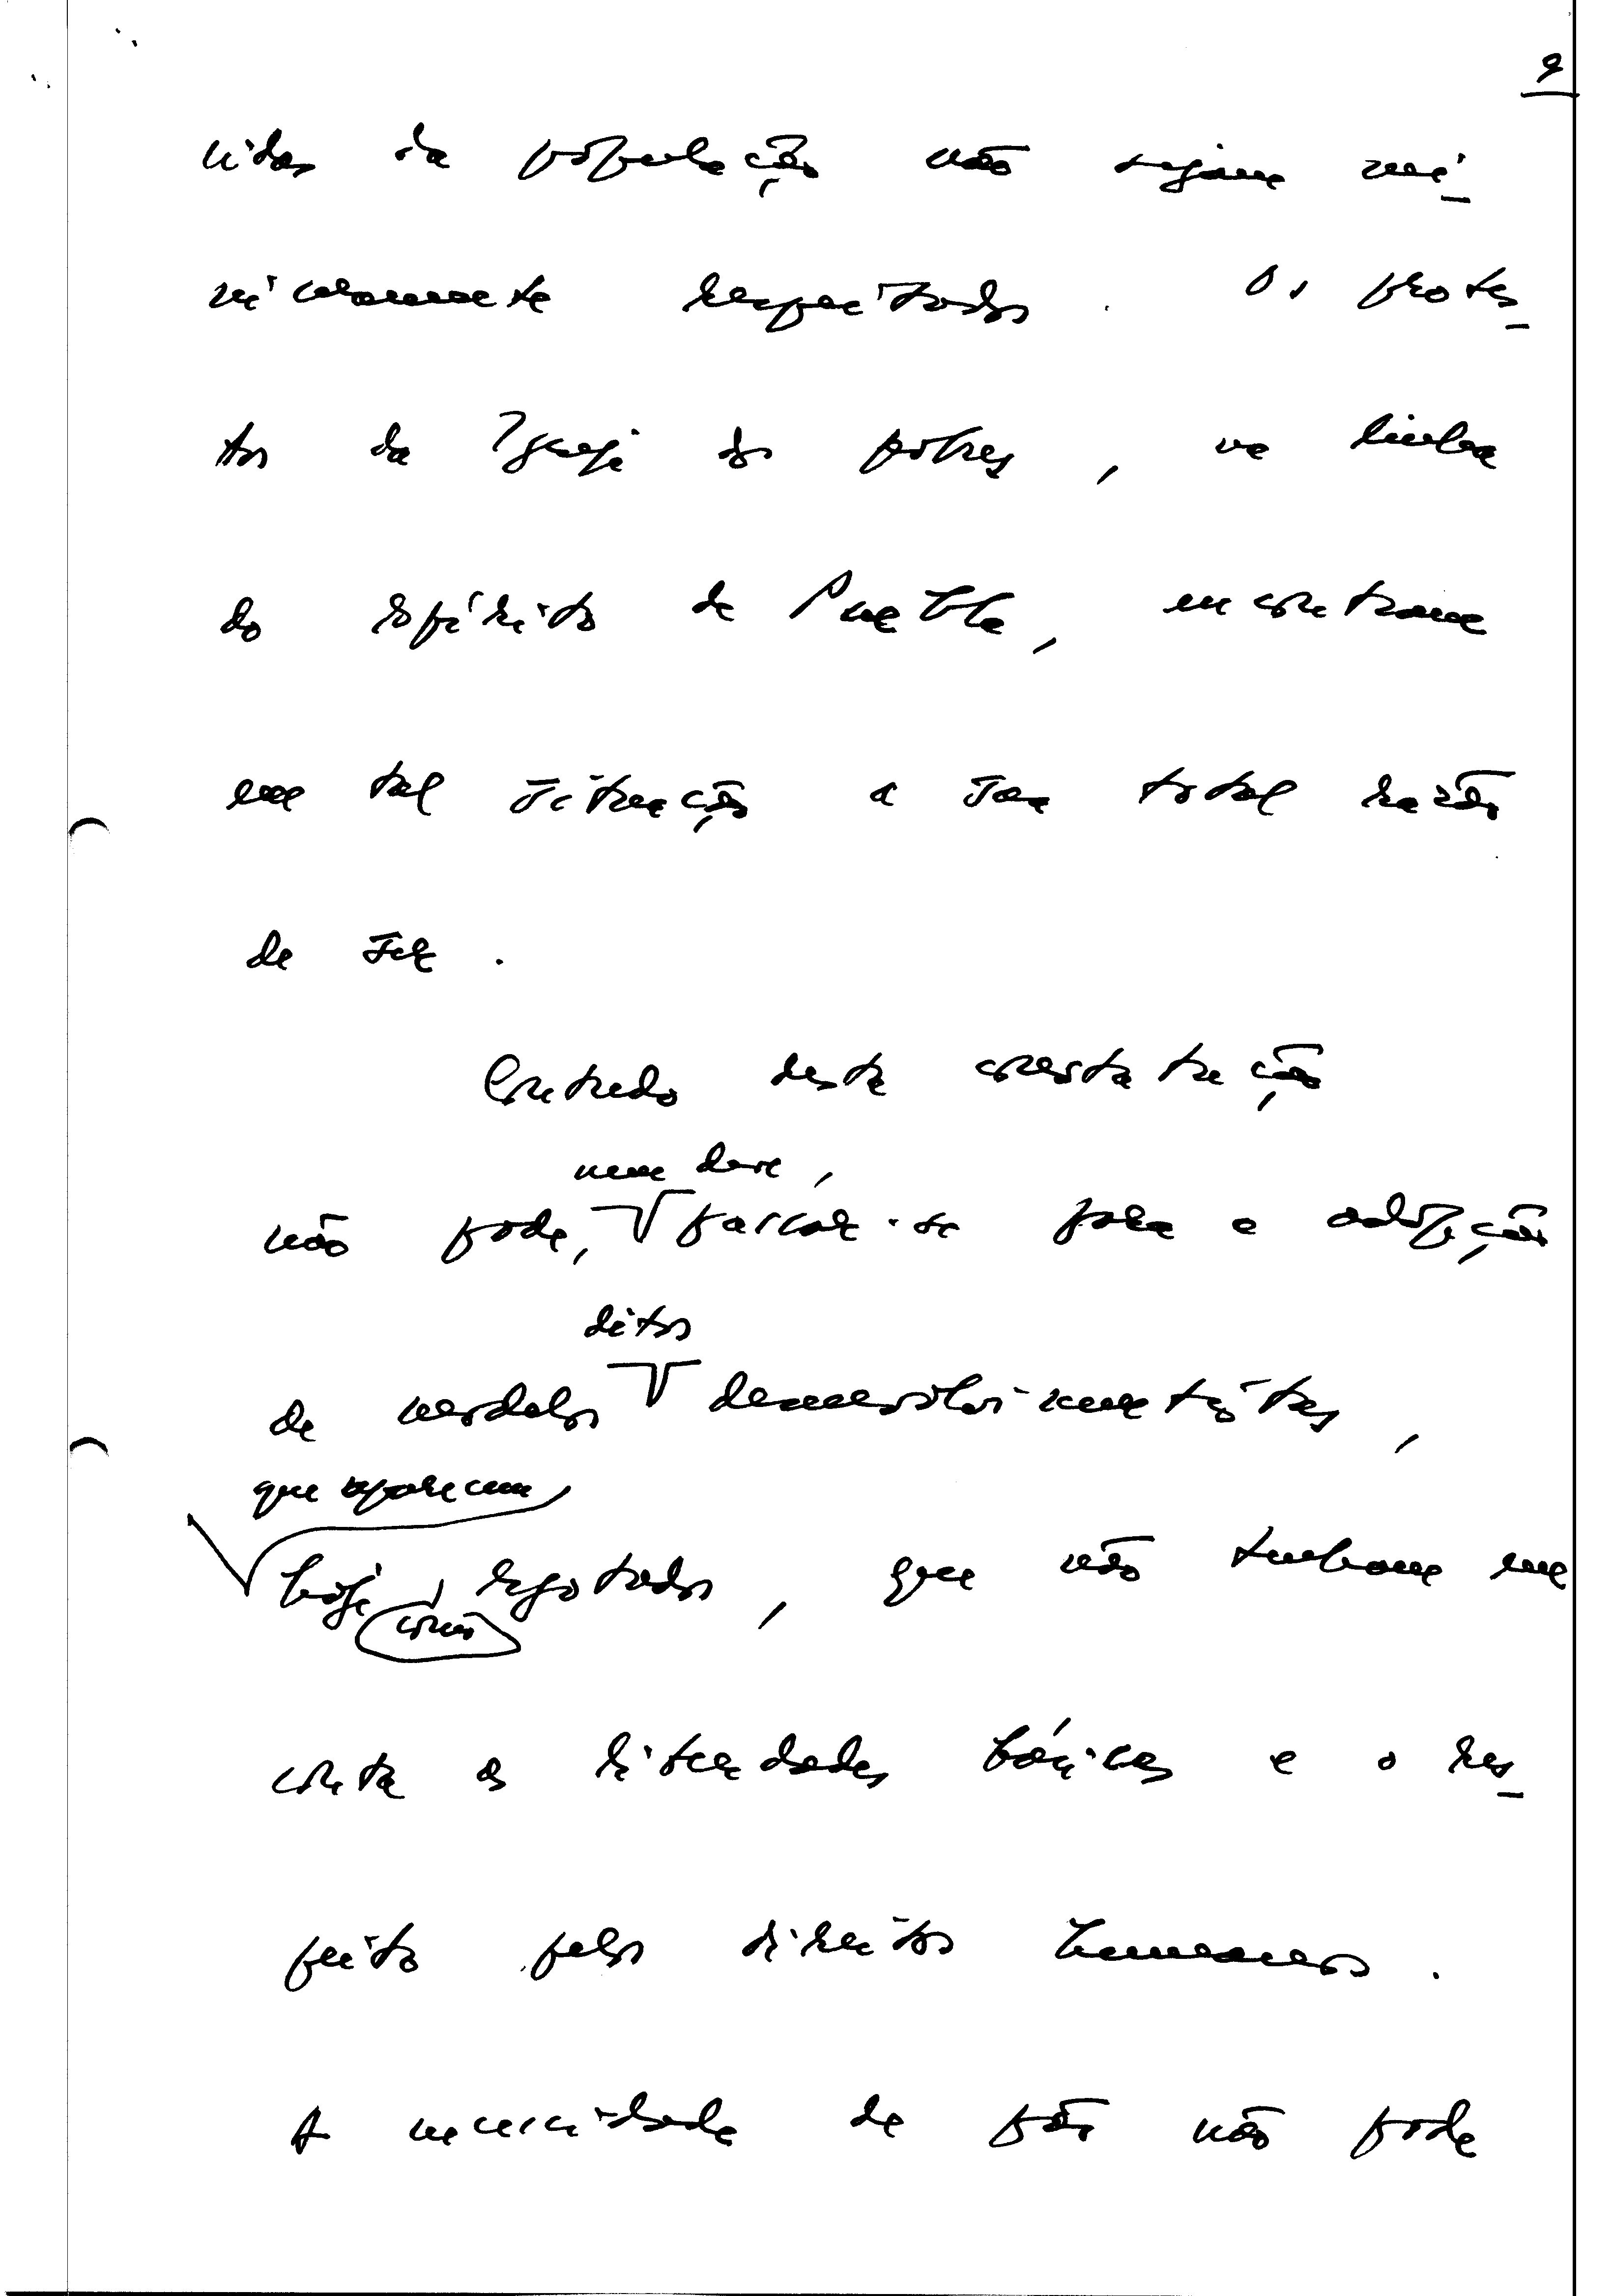 9
vidas da população não sejam mí-
nimamente respeitados. Os protes-
tos da Igreja dos pobres, na linha
do espírito de Puebla, encontram
em tal situação a sua total razão
de ser.
Contudo desta constatação
nem deve,
não pode, passar-se para a adoção
ditos
de modelos desenvolvimentistas,
que aparecem
hoje esgotados, que não tenham em
como
conta as liberdades básicas e o res-
peito pelos direitos humanos.
A necessidade de pão não pode